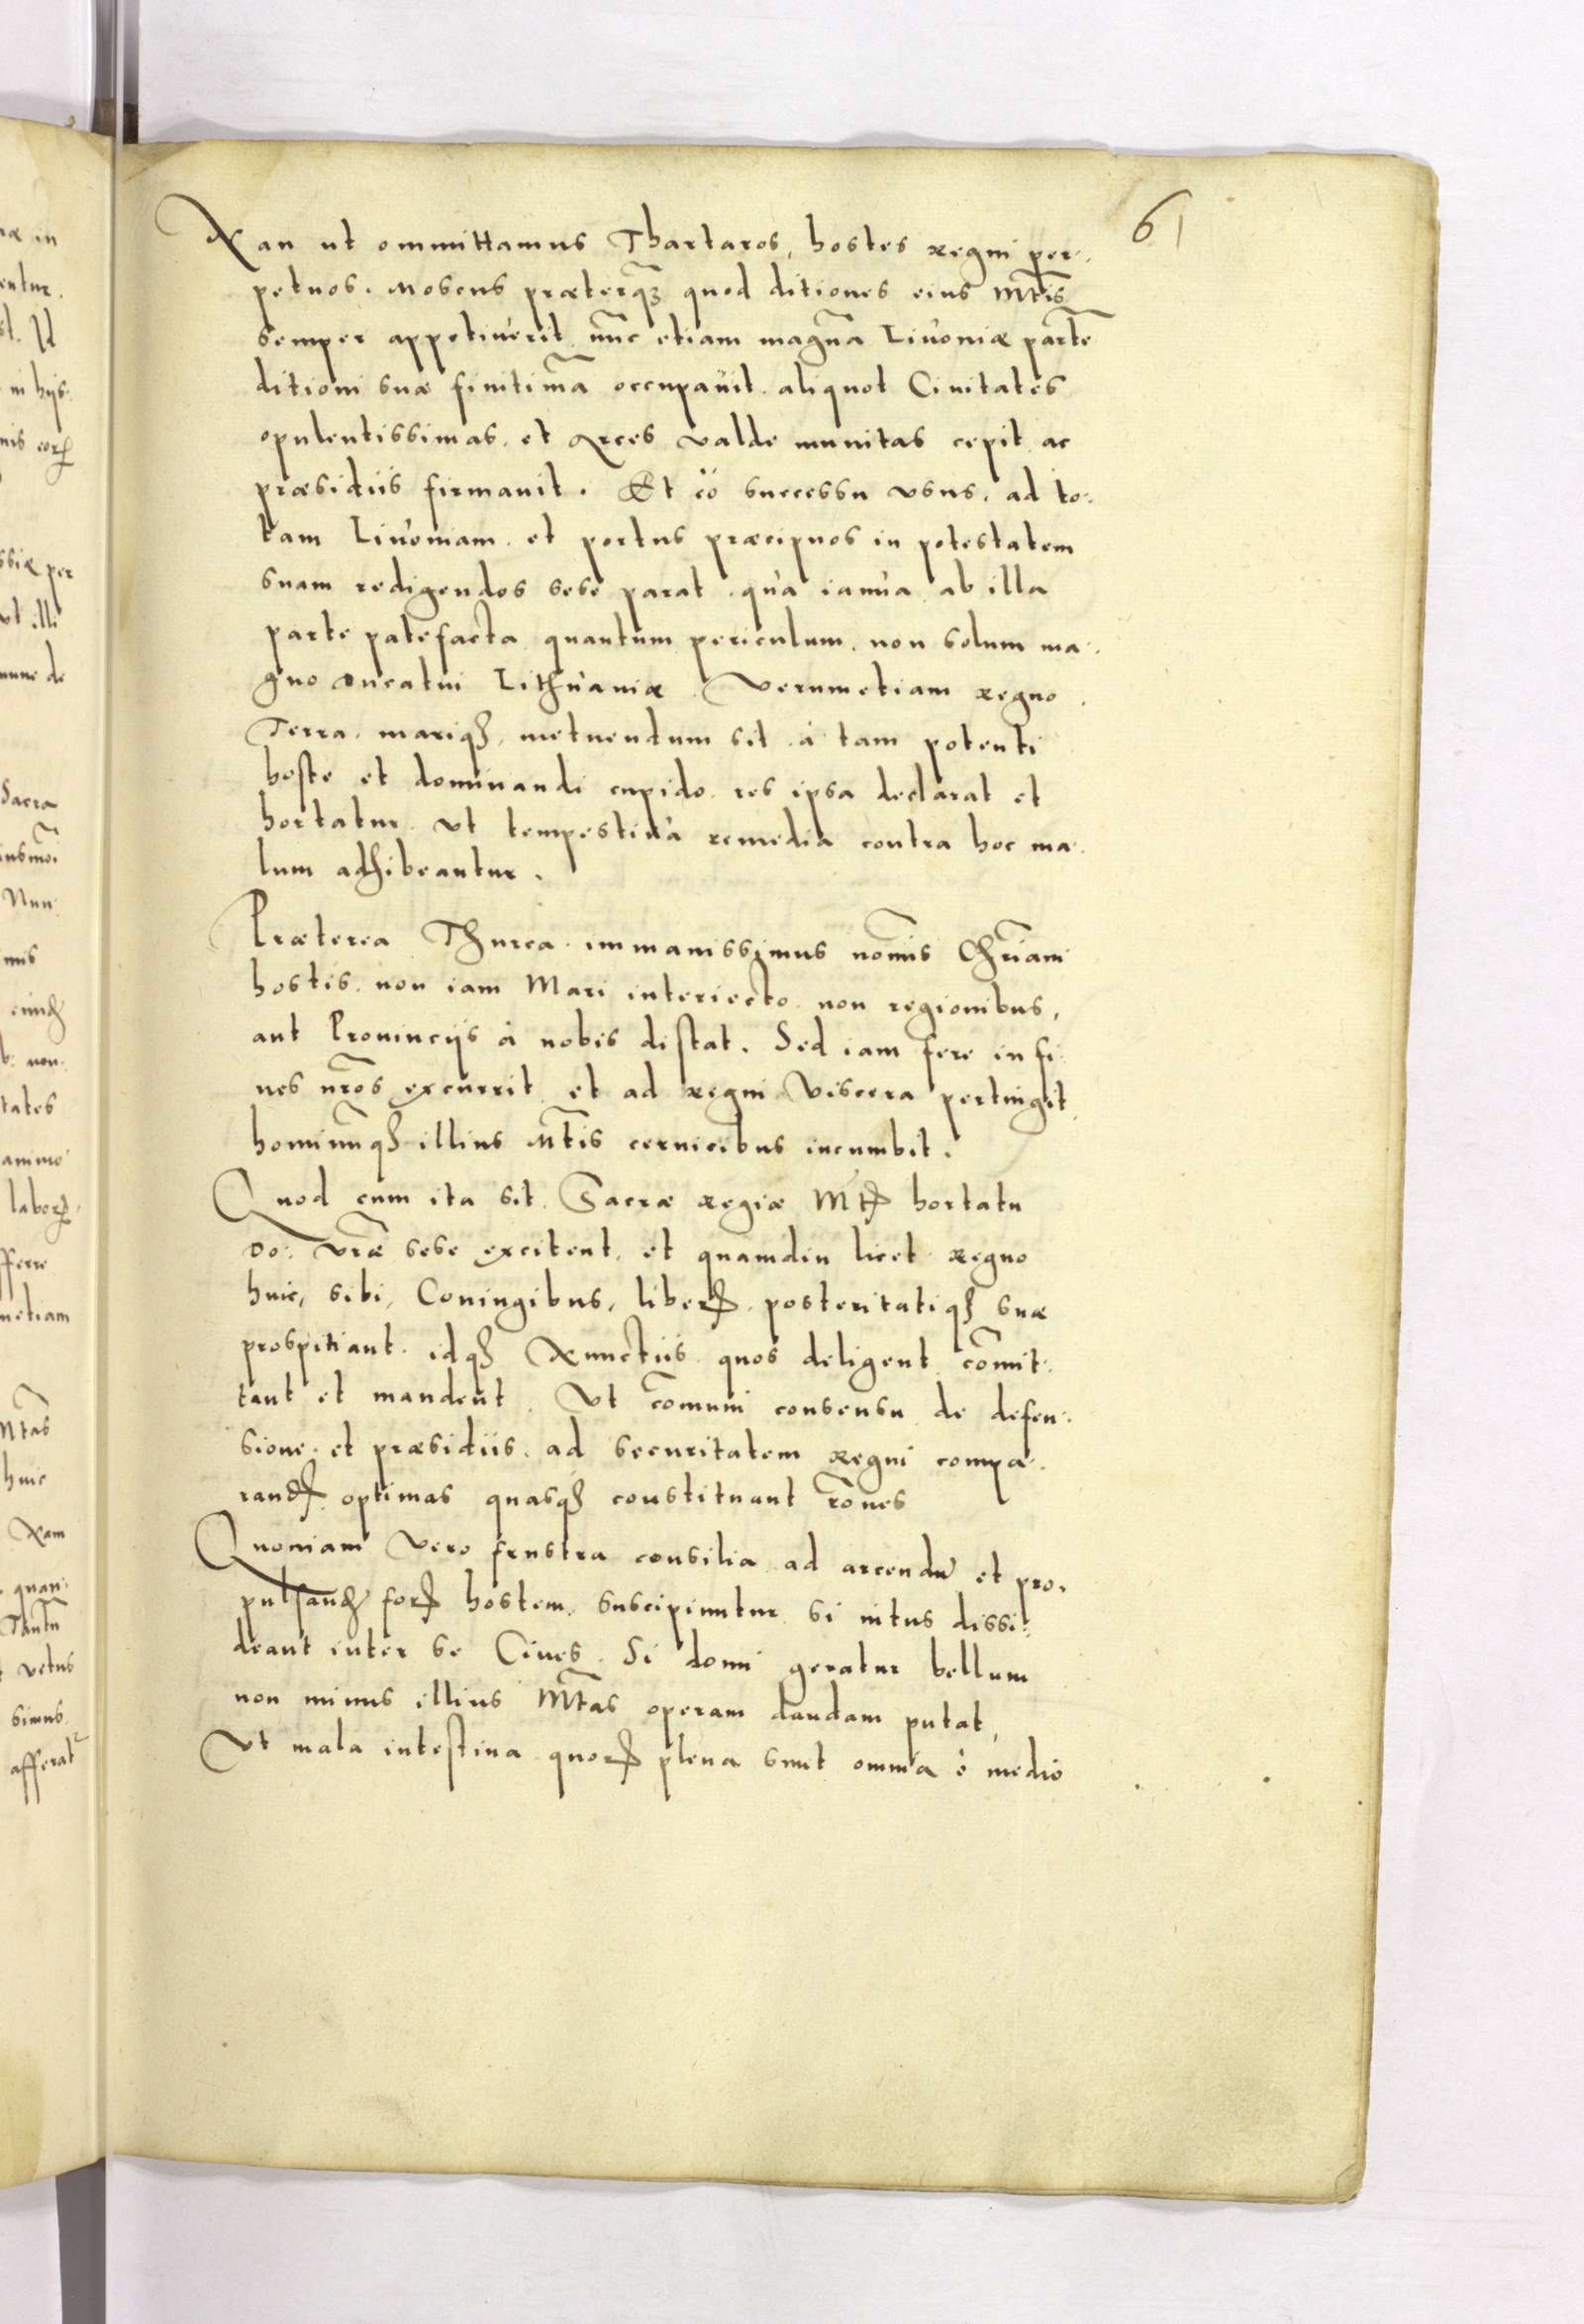 61
Nan ut ommittamus Thartaros, hostes regni per-
petuos. Moscus præterq̃ quod ditiones eius Mtis
semper appetiverit nũc etiam magnã Livoniæ partẽ
ditioni suæ finitimã occupavit aliquot Civitates
opulentissimas, et Arces valde munitas cepit ac
præsidiis firmavit. Et eo successu usus, ad to-
tam Livoniam, et portus præcipuos in potestatem
suam redigendos sese parat, qua ianua ab illa
parte patefacta quantum periculum, non solum ma-
gno Ducatui Lithuaniæ Verumetiam regno
Terra mariq; metuendum sit à tam potenti
hoste et dominandi cupido res ipsa declarat et
hortatur Vt tempestiva remedia contra hoc ma-
lum adhibeantur.
Præterea Thurca immanissimus noĩnis Chr̃iani
hostis, non iam Mari interiecto non regionibus,
aut Provincijs à nobis distat. Sed iam fere in fi-
nes nr̃os excurrit et ad regni Viscera pertingit
hominũq; illius Mtis cervicibus incumbit.
Quod cum ita sit Sacræ regiæ Mtis hortatu
Do: Vr̃æ sese excitent, et quamdiu licet regno
huic, sibi, Coniugibus, liberis, posteritatiq; suæ
prospitiant, idq; Nunctiis quos deligent com̃it-
tant et mandent, Vt com̃uni consensu de defen-
sione et præsidiis ad securitatem regni compa-
randis optimas quasq; constituant rõnes
Quoniam Vero frustra consilia ad arcendũ et pro-
pulsandũ foris hostem suscipiuntur si intus dissi-
deant inter se Cives. Si domi geratur bellum
non minus illius Mtas operam dandam putat,
Vt mala intestina quorum plena sunt omnia è medio